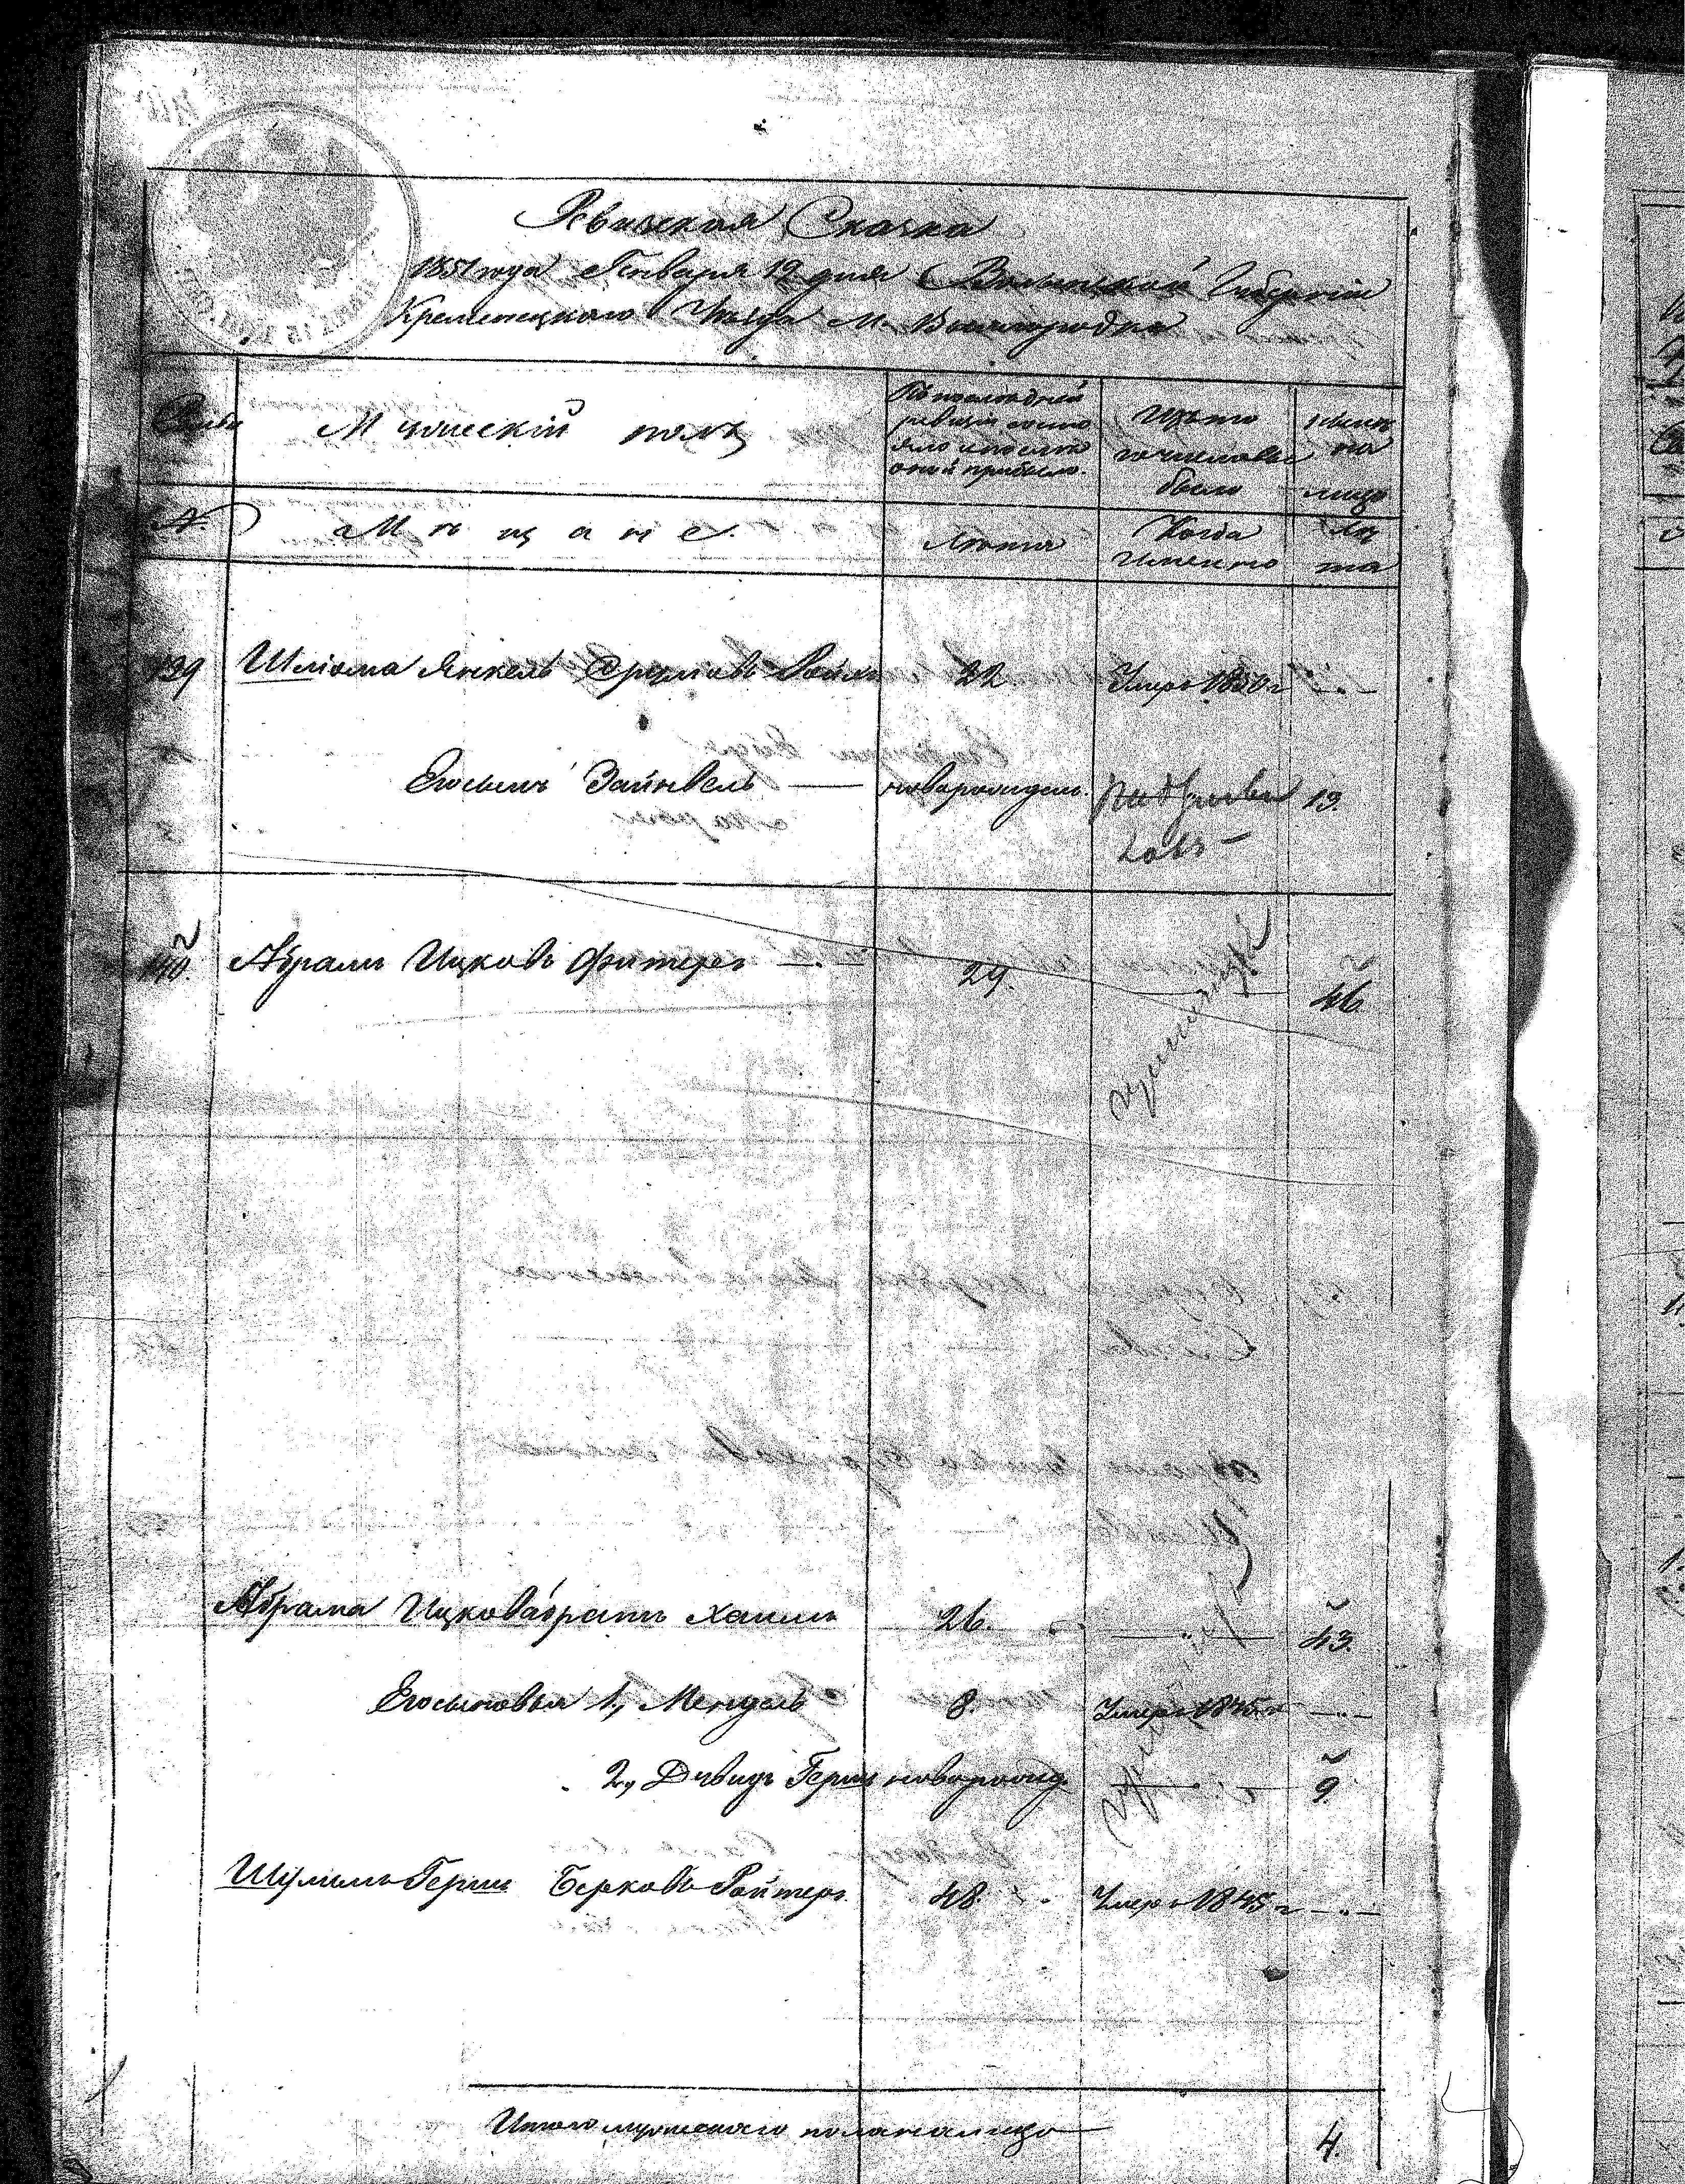 Ревизская Сказка
1851 года Генваря 12 дня Волынской Губернии
Кременецкаго Уезда М. Вышгородка
Семьи
Мужескій полъ
По последней
ревизіи состо
яло и после
оной прибыло.
Изъ того
числа выбыло
ныне
на
лицо
№
Мѣщане.
Лета
Когда
именно
Ле
та
139 Шліома Янкель Сруловъ 22 Умеръ 1850 г
Его сынъ Зайнвель новорожден. 19.
140. Абрамъ Ицковъ Фитеръ 29. 46
Абрама Ицкова братъ Хаимъ 26. 43.
Его сыновья 1, Мендель 8. Умеръ 1845 г
2, Давидъ Гершъ новорожд 9
Шулимъ Гершъ Берковъ Ройтеръ 48 Умеръ 1845 г
Итого мужескаго пола на лицо 4.